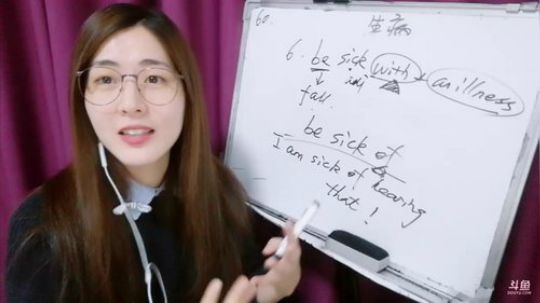 60.
生病
6. be sick with + an illness
↓ adj
fall.
be sick of
I am sick of hearing
that!
斗鱼
DOUYU.COM